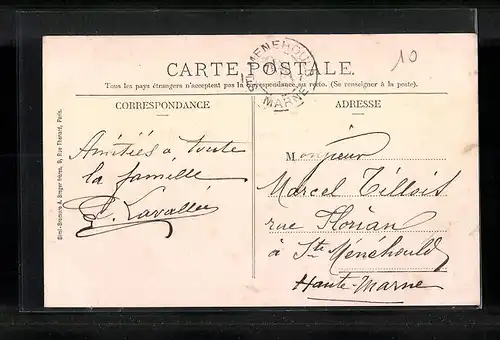 10
STE MENEHOULD
MARNE
CARTE POSTALE
Tous les pays étrangers n'acceptent pas la correspondance au recto. (Se renseigner à la poste).
CORRESPONDANCE
Amitiés à toute
la famille
Lavallée
ADRESSE
Monsieur
Marcel Tillois
rue Florian
à Ste Ménéhould
Haute-Marne
Simili-Bromure A. Breger frères, 9, Rue Thénard, Paris.